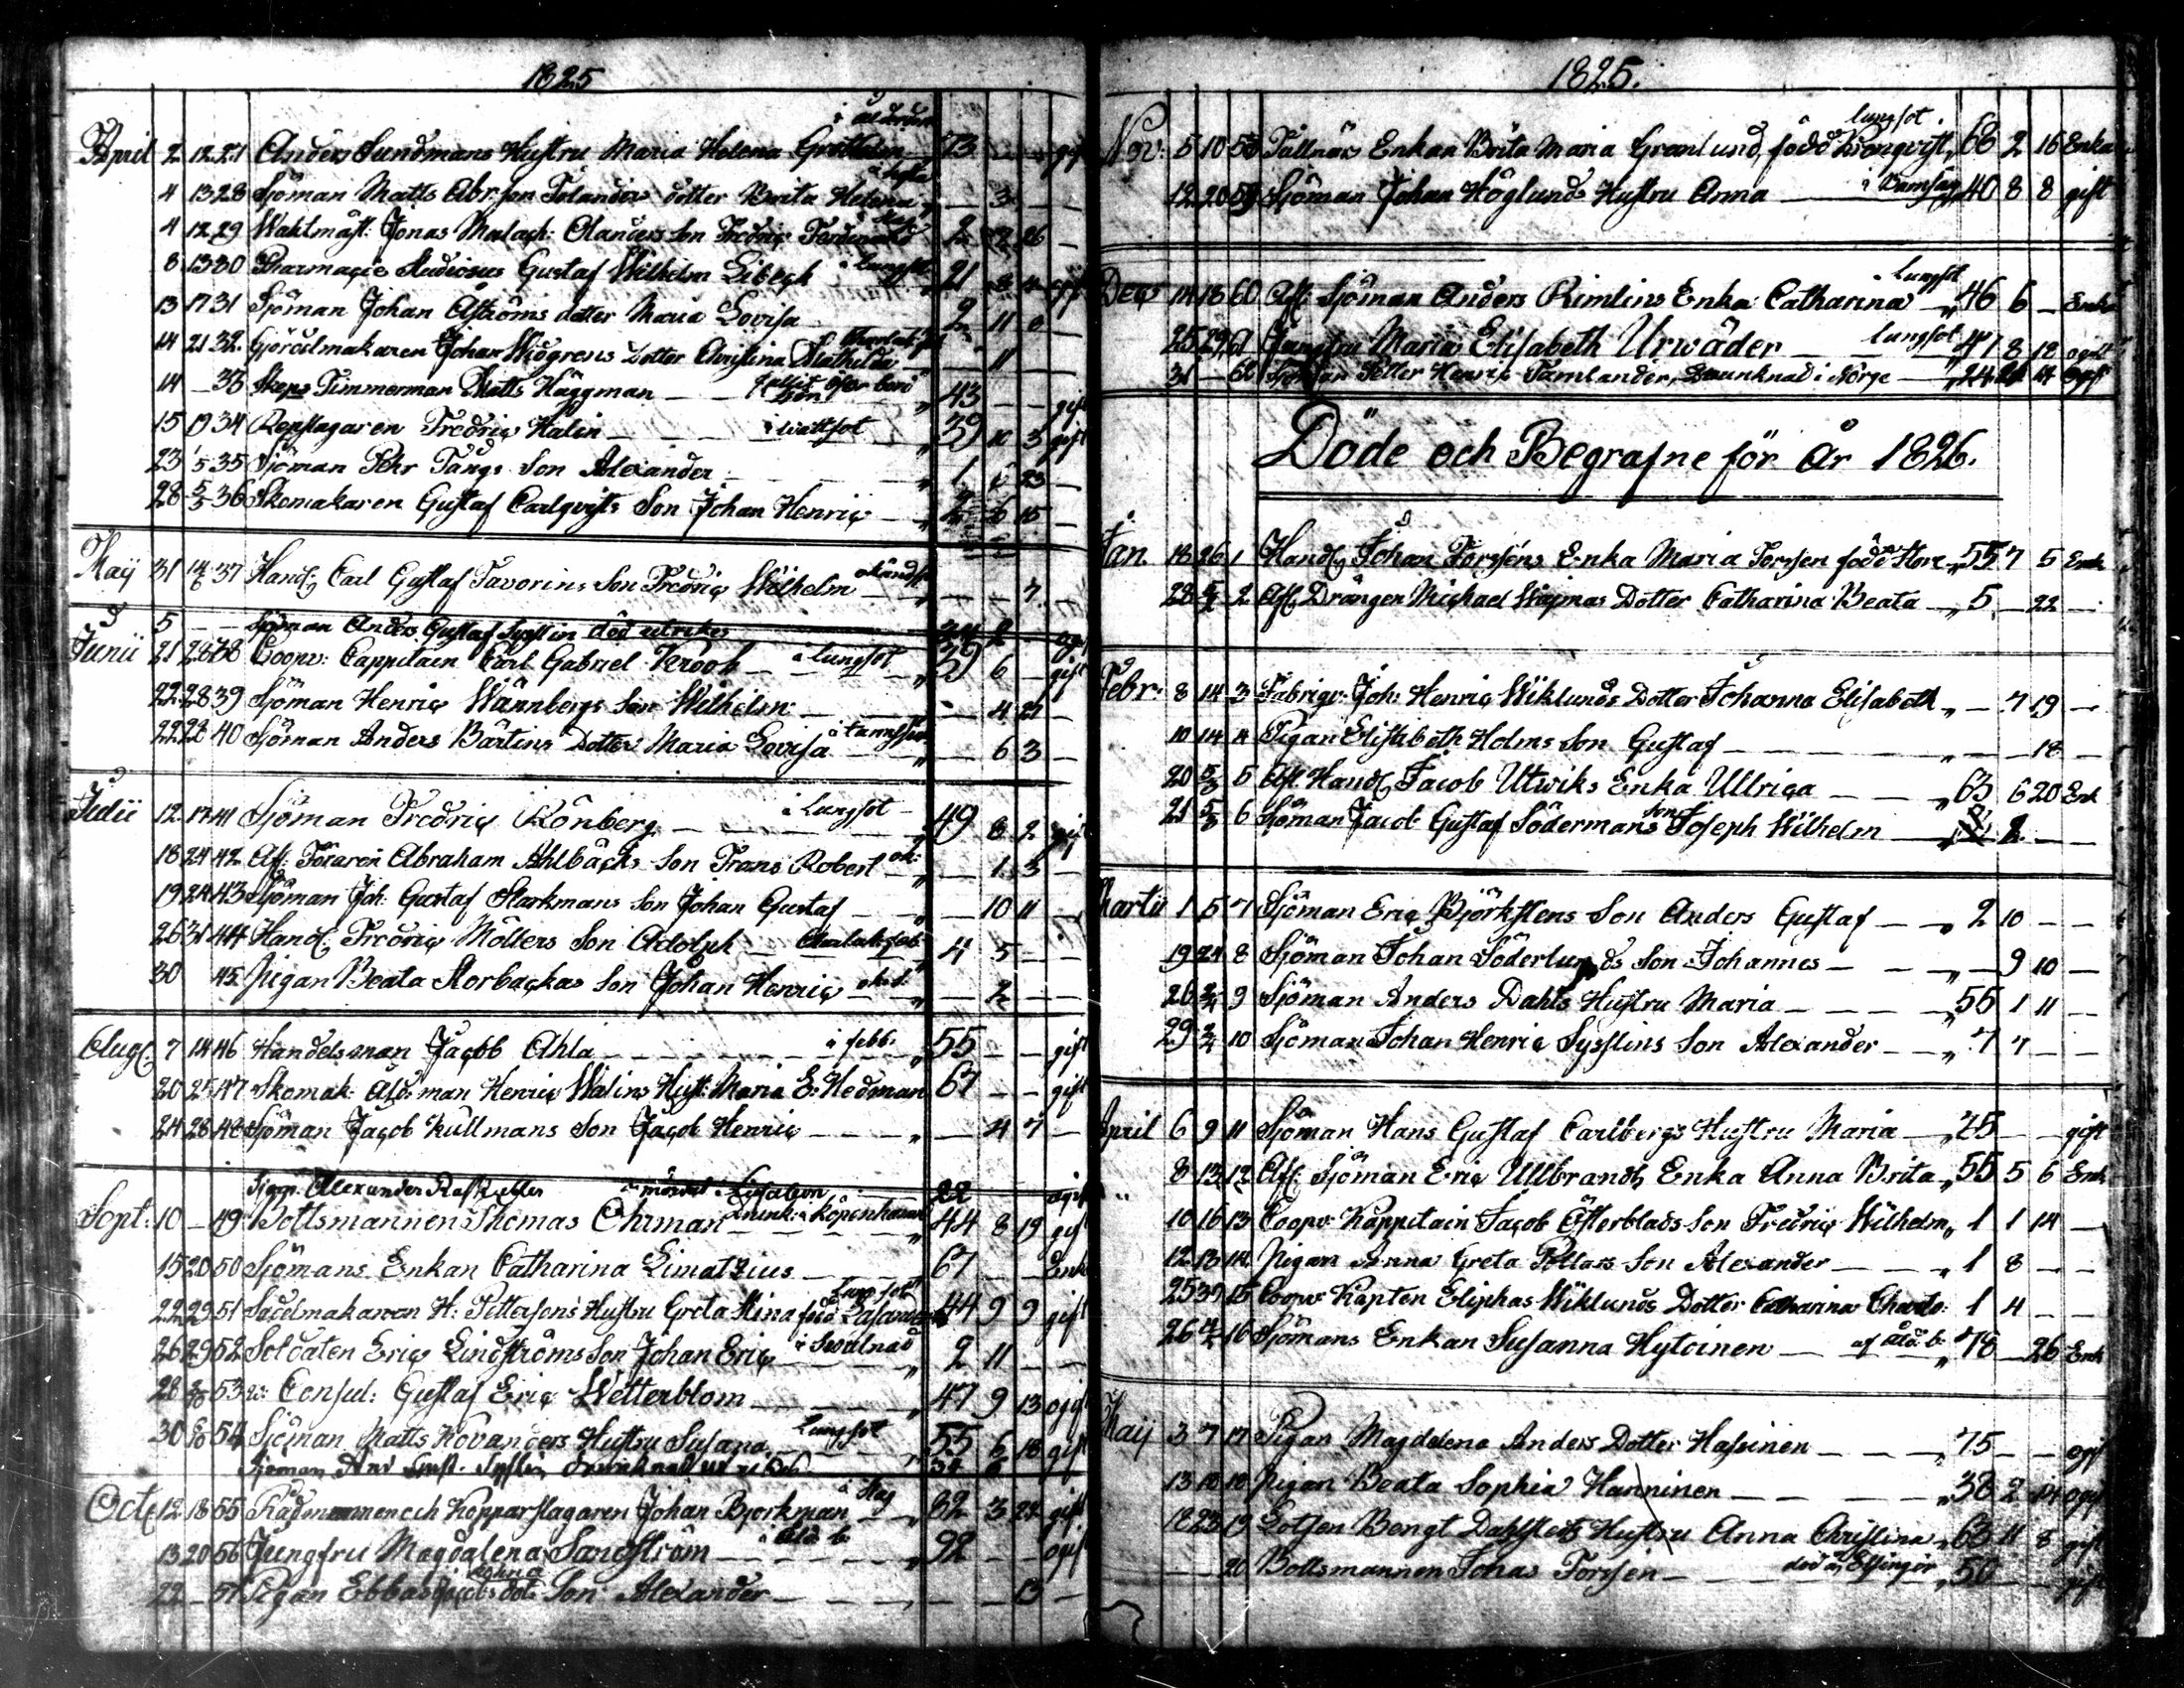 1825
April 2 12 27 Anders Sundmans Hustru Maria Helena 73 - - gift
4 13 28 Sjöman Matts Abr:son Tolanders dotter Brita Helena - 3 - -
4 12 29 Waktmäst: Jonas Malach: Olanders Son Fredric Ferdinand 2 26 -
8 13 30 Pharmaciæ Studiosus Gustaf Wilhelm Libeck i Lungsot 21
13 17 31 Sjöman Johan Åströms dotter Maria Lovisa 2 11
14 21 32 Gjördelmakaren Johan Widgrens Dotter Christina Mathilda - 11 - -
14 - 33 Skeps Timmerman Matts Häggman fallit öfver bord 43 - - gift
15 19 34 Repslagaren Fredric Halin i wattsot 39 10 3 gift
23 1/5 35 Sjöman Pehr Tångs Son Alexander 1 23 -
28 5/5 36 Skomakaren Gustaf Carlqvists Son Johan Henric 2 6 15 -
Maij 31 14/6 37 Handl Carl Gustaf Favorins Son Fredric Wilhelm - - 7
5 - - Sjöman Anders Gustaf Sysslin död utrikes 34 2 - ogift
Junii 21 28 38 Coopv: Cappitain Carl Gabriel Krook i lungsot 39 6 - gift
22 28 39 Sjöman Henric Wännbergs Son Wilhelm - 4 27 -
22 28 40 Sjöman Anders Bärtins Dotter Maria Lovisa - 6 3 -
Julii 12 17 41 Sjöman Fredric Rönberg i Lungsot 49 8 2 gift
18 24 42 Af: Föraren Abraham Ahlbäcks Son Frans Robert ok: - 1 3 -
19 24 43 Sjöman Joh: Gustaf Starkmans Son Johan Gustaf - 10 11 -
26 31 44 Handl Fredric Möllers Son Adolph Charlak:feb: 4 5 - -
30 45 Pigan Beata Storbackas Son Johan Henric ok.t. - 2 - -
Aug 7 14 46 Handelsman Jacob Ahla i febb: 55 - - gift
20 25 47 Skomak: Åldman Henric Walins Hust: Maria E: Hedman 67 - - gift
24 28 48 Sjöman Jacob Kullmans Son Jacob Henric - 4 7 -
Alexander mördad i Lissabon 22 ogift
Sept: 10 - 49 Bottsmannen Thomas Öhrman Drunk: i Köpenhamn 44 8 19 gift
15 20 50 Sjömans Enkan Catharina Limatzius 67 - - Enk
22 29 51 Sadelmakaren H: Pettersons Hustru Greta Stina född Lungsot 44 9 9 gift
26 29 52 Soldaten Eric Lindströms Son Johan Eric i Swulnad 2 11 - -
28 2/10 53 v: Consul: Gustaf Eric Wetterblom 47 9 13 ogift
30 54 Sjöman Matts Kovanders Hustru Susana Lungsot 55 6 18 gift
Sjöman And Gust. Sysslin drunknad 34
Oct 12 18 55 Rådmannen och Kopparslagaren Johan Bjorkman i Slag 82 3 22 gift
13 20 56 Jungfru Magdalena Sandström i Åld b 92 - - ogift
22 - 57 Pigan Ebba Jacobsdotr Son Alexander - - 13 -
1825.
Nov: 5 10 58 Enkan Brita Maria Granlund, född Kronqvist, lungsot 68 2 16 Enka
12 20 59 Sjöman Johan Höglunds Hustru Anna i Barnsäng 40 8 8 gift
Dec 14 18 60 Afl: Sjöman Anders Rimlins Enka Catharina i Lungsot 46 6 - Enka
25 29 61 Jungfru Maria Elisabeth Urwäder lungsot 47 8 12 ogift
31 - 62 Sjöman Petter Henric Tamlander, Drunknad i Norge 24 14 ogift
Döde och Begrafne för år 1826.
Jan. 18 26 1 Handl Johan Forssens Enka Maria Forssen född Hore 55 7 5 Enk
28 5/2 2 Afl: Drängen Michael Wajmas Dotter Catharina Beata 5 - 22 -
Febr: 8 14 3 Fabriqv: Joh: Henric Wiklunds Dotter Johanna Elisabeth - 7 19 -
10 14 4 Pigan Elisabeth Holms Son Gustaf - - 18 -
20 5/3 5 Afl Handl Jacob Utwiks Enka Ullrica 63 6 20 Enk
21 5/3 6 Sjöman Jacob Gustaf Södermans Son Joseph Wilhelm 2 - -
Martii 1 5 7 Sjöman Eric Björkstens Son Anders Gustaf 2 10 - -
19 24 8 Sjöman Johan Söderlunds Son Johannes - 9 10 -
26 2/4 9 Sjöman Anders Dahls Hustru Maria 55 1 11 -
29 2/4 10 Sjöman Johan Henric Sysslins Son Alexander 7 7 - -
April 6 9 11 Sjöman Hans Gustaf Carlbergs Hustru Maria 75 - - gift
8 13 12 Afl: Sjöman Eric Ullbrandts Enka Anna Brita 55 5 6 Enk
10 16 13 Coopv: Kappitain Jacob Österblads Son Fredric Wilhelm 1 1 14 -
12 13 14 Pigan Anna Greta Pollars Son Alexander 1 8 - -
25 30 15 Coopv: Kapten Eliphas Wiklunds Dotter Catharina Charlo: 1 4 - -
26 16 Sjömans Enkan Susanna Hytoinen af åld: b: 78 - 26 Enk
Maij 3 7 17 Pigan Magdelena Anders Dotter Hassinen 75 - - ogif
13 18 18 Pigan Beata Sophia Hanninen 38 2 14 ogif
18 23 19 Lotsen Bengt Dahlstedts Hustru Anna Christina 63 11 8 gift
- - 20 Bottsmannen Jonas Forssen död i Elsingör 50 - - gift